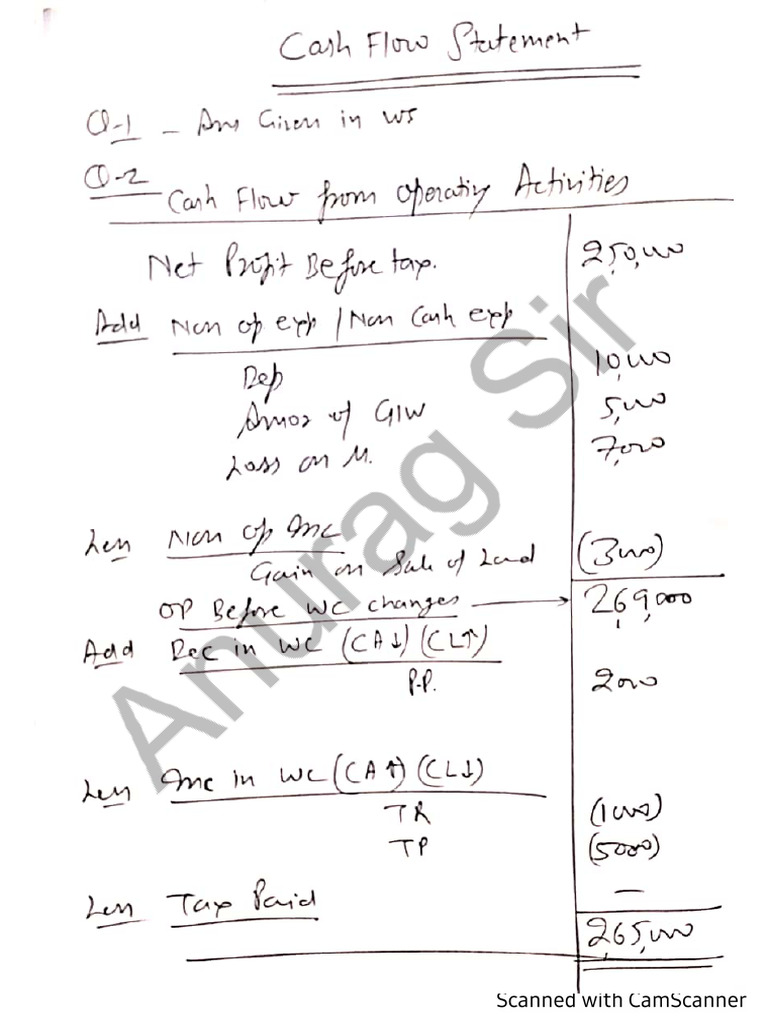 Cash Flow Statement
Q-1 - Ans Given in WS
Q-2
Cash Flow from Operating Activities
Net Profit Before tax. 250,000
Add Non op exp / Non Cash exp
Dep 10,000
Amor of G/W 5,000
Loss on M. 7,000
Less Non op Inc
Gain on Sale of Land (3000)
OP Before WC changes → 269,000
Add Dec in WC (CA↓) (CL↑)
P.P. 2000
Less Inc in WC (CA↑) (CL↓)
TR (1000)
TP (5000)
Less Tax Paid —
265,000
Anurag Sir
Scanned with CamScanner